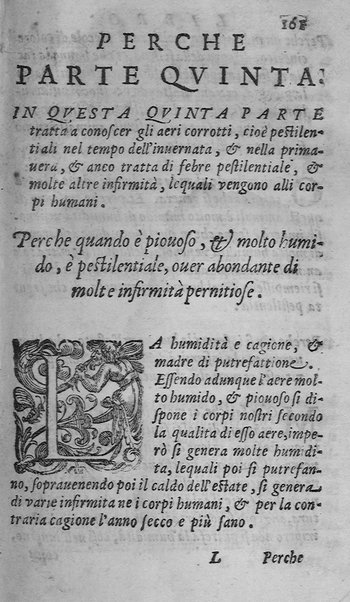 161
PERCHE
PARTE QVINTA.
IN QVESTA QVINTA PARTE
tratta a conoscer gli aeri corrotti, cioè pestilen-
tiali nel tempo dell'inuernata, & nella prima-
uera, & anco tratta di febre pestilentiale, &
molte altre infirmità, lequali vengono alli cor-
pi humani.
Perche quando è piouoso, & molto humi-
do, è pestilentiale, ouer abondante di
molte infirmità pernitiose.
LA humidità e cagione, &
madre di putrefattione.
Essendo adunque l'aere mol-
to humido, & piouoso si di-
spone i corpi nostri secondo
la qualita di esso aere, impe-
rò si genera molte humidi-
ta, lequali poi si putrefan-
no, soprauenendo poi il caldo dell'estate, si genera
di varie infirmita ne i corpi humani, & per la con-
traria cagione l'anno secco e più sano.
L Perche